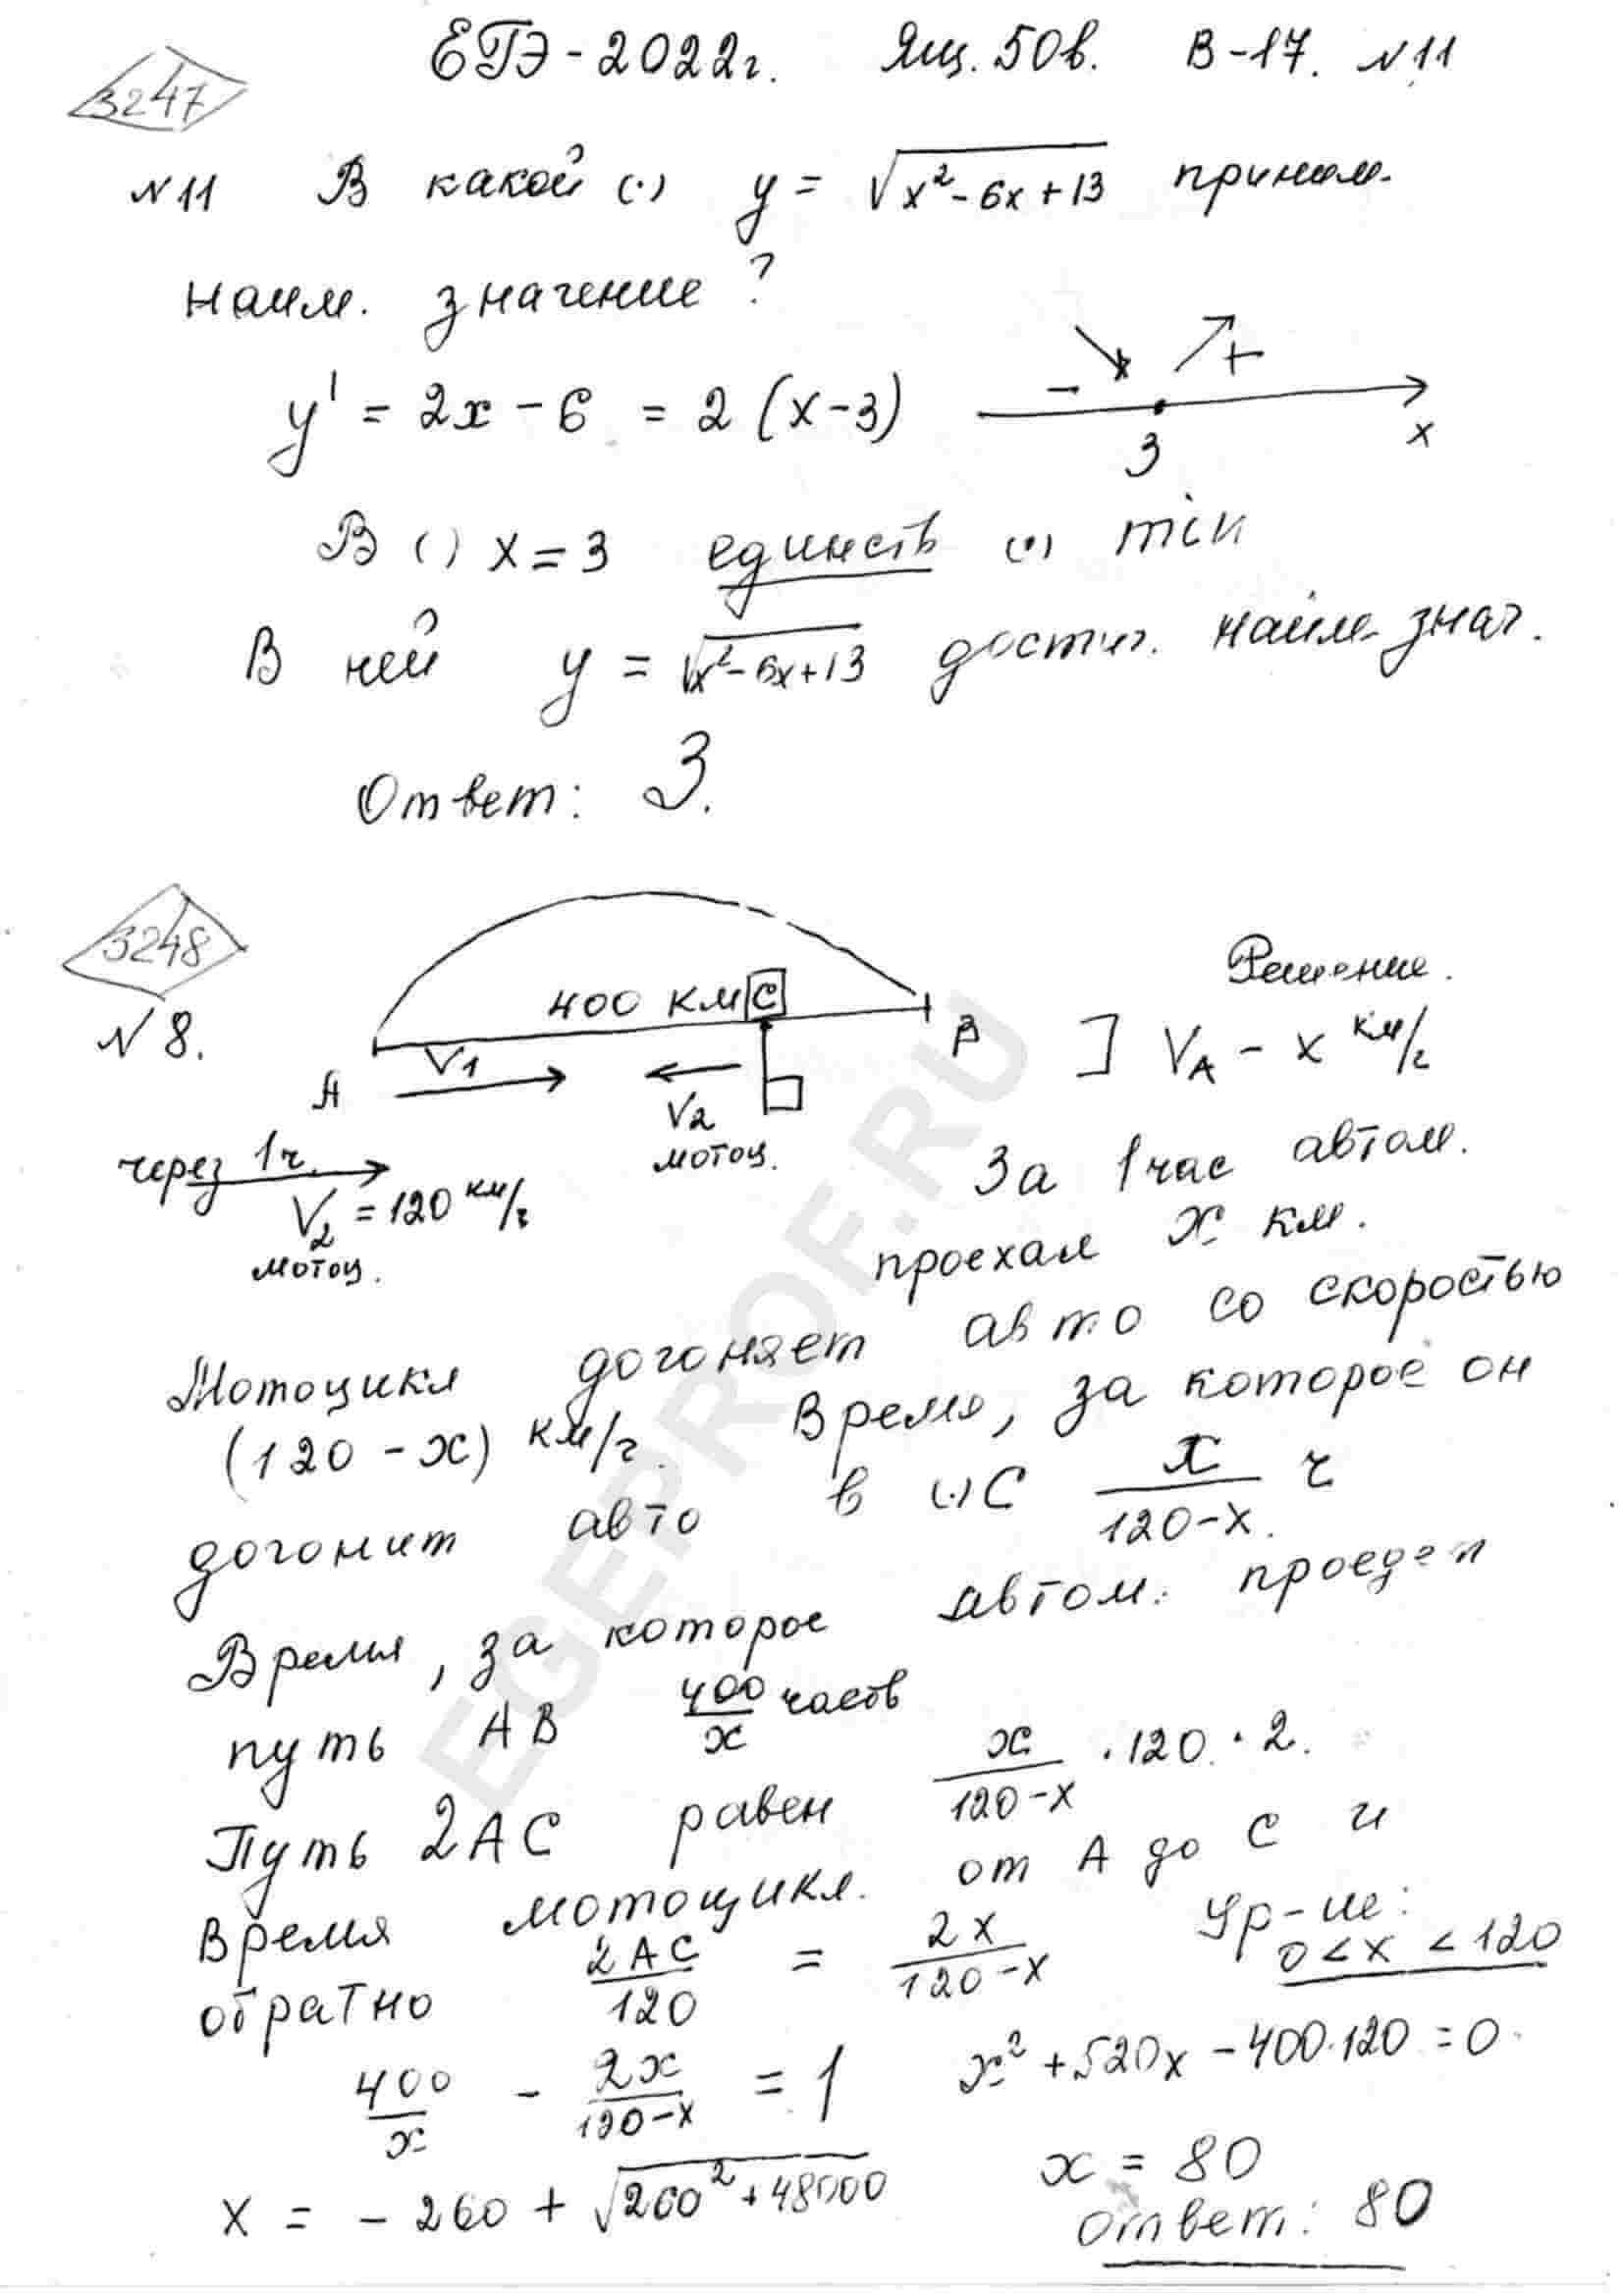 ЕГЭ-2022г. Ящ. 50в. В-17. №11
3247
№11 В какой (·) y = √(x²-6x+13) приним.
наим. значение?
y' = 2x - 6 = 2(x-3)
- + 3 x
В ( ) x = 3 единств (·) min
В ней y = √(x²-6x+13) достиг. наим. знач.
Ответ: 3.
3248
№8.
400 км C
A B
V1
V2
мотоц.
через 1ч.
V2 = 120 км/ч
мотоц.
Решение.
] VA - x км/ч
За 1 час автом.
проехал x км.
Мотоцикл догоняет авто со скоростью
(120 - x) км/ч. Время, за которое он
догонит авто в (·) C x/(120-x) ч
Время, за которое автом. проедет
путь AB 400/x часов
Путь 2AC равен x/(120-x) · 120 · 2.
Время мотоцикл. от A до C и
обратно 2AC/120 = 2x/(120-x) Ур-ие:
0 < x < 120
400/x - 2x/(120-x) = 1 x² + 520x - 400·120 = 0
x = -260 + √(260² + 48000) x = 80
Ответ: 80
EGEPROF.RU